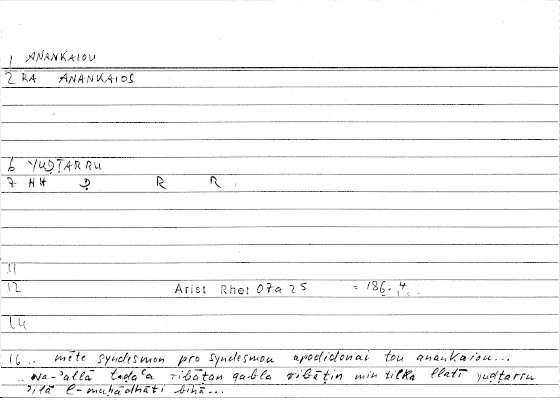 1 ANANKAIOU
2 RA ANANKAIOS
6 YUḌṬARRU
7 HH Ḍ R R
11
12 Arist Rhet 07a25 = 186.4
14
16 .. mēte syndesmon pro syndesmou apodidonai tou anankaiou...
.. wa-ʾallā tadaʿa ribāṭan qabla ribāṭin min tilka llatī yuḍṭarru
ʾilā l-muḥādhāti bihā...